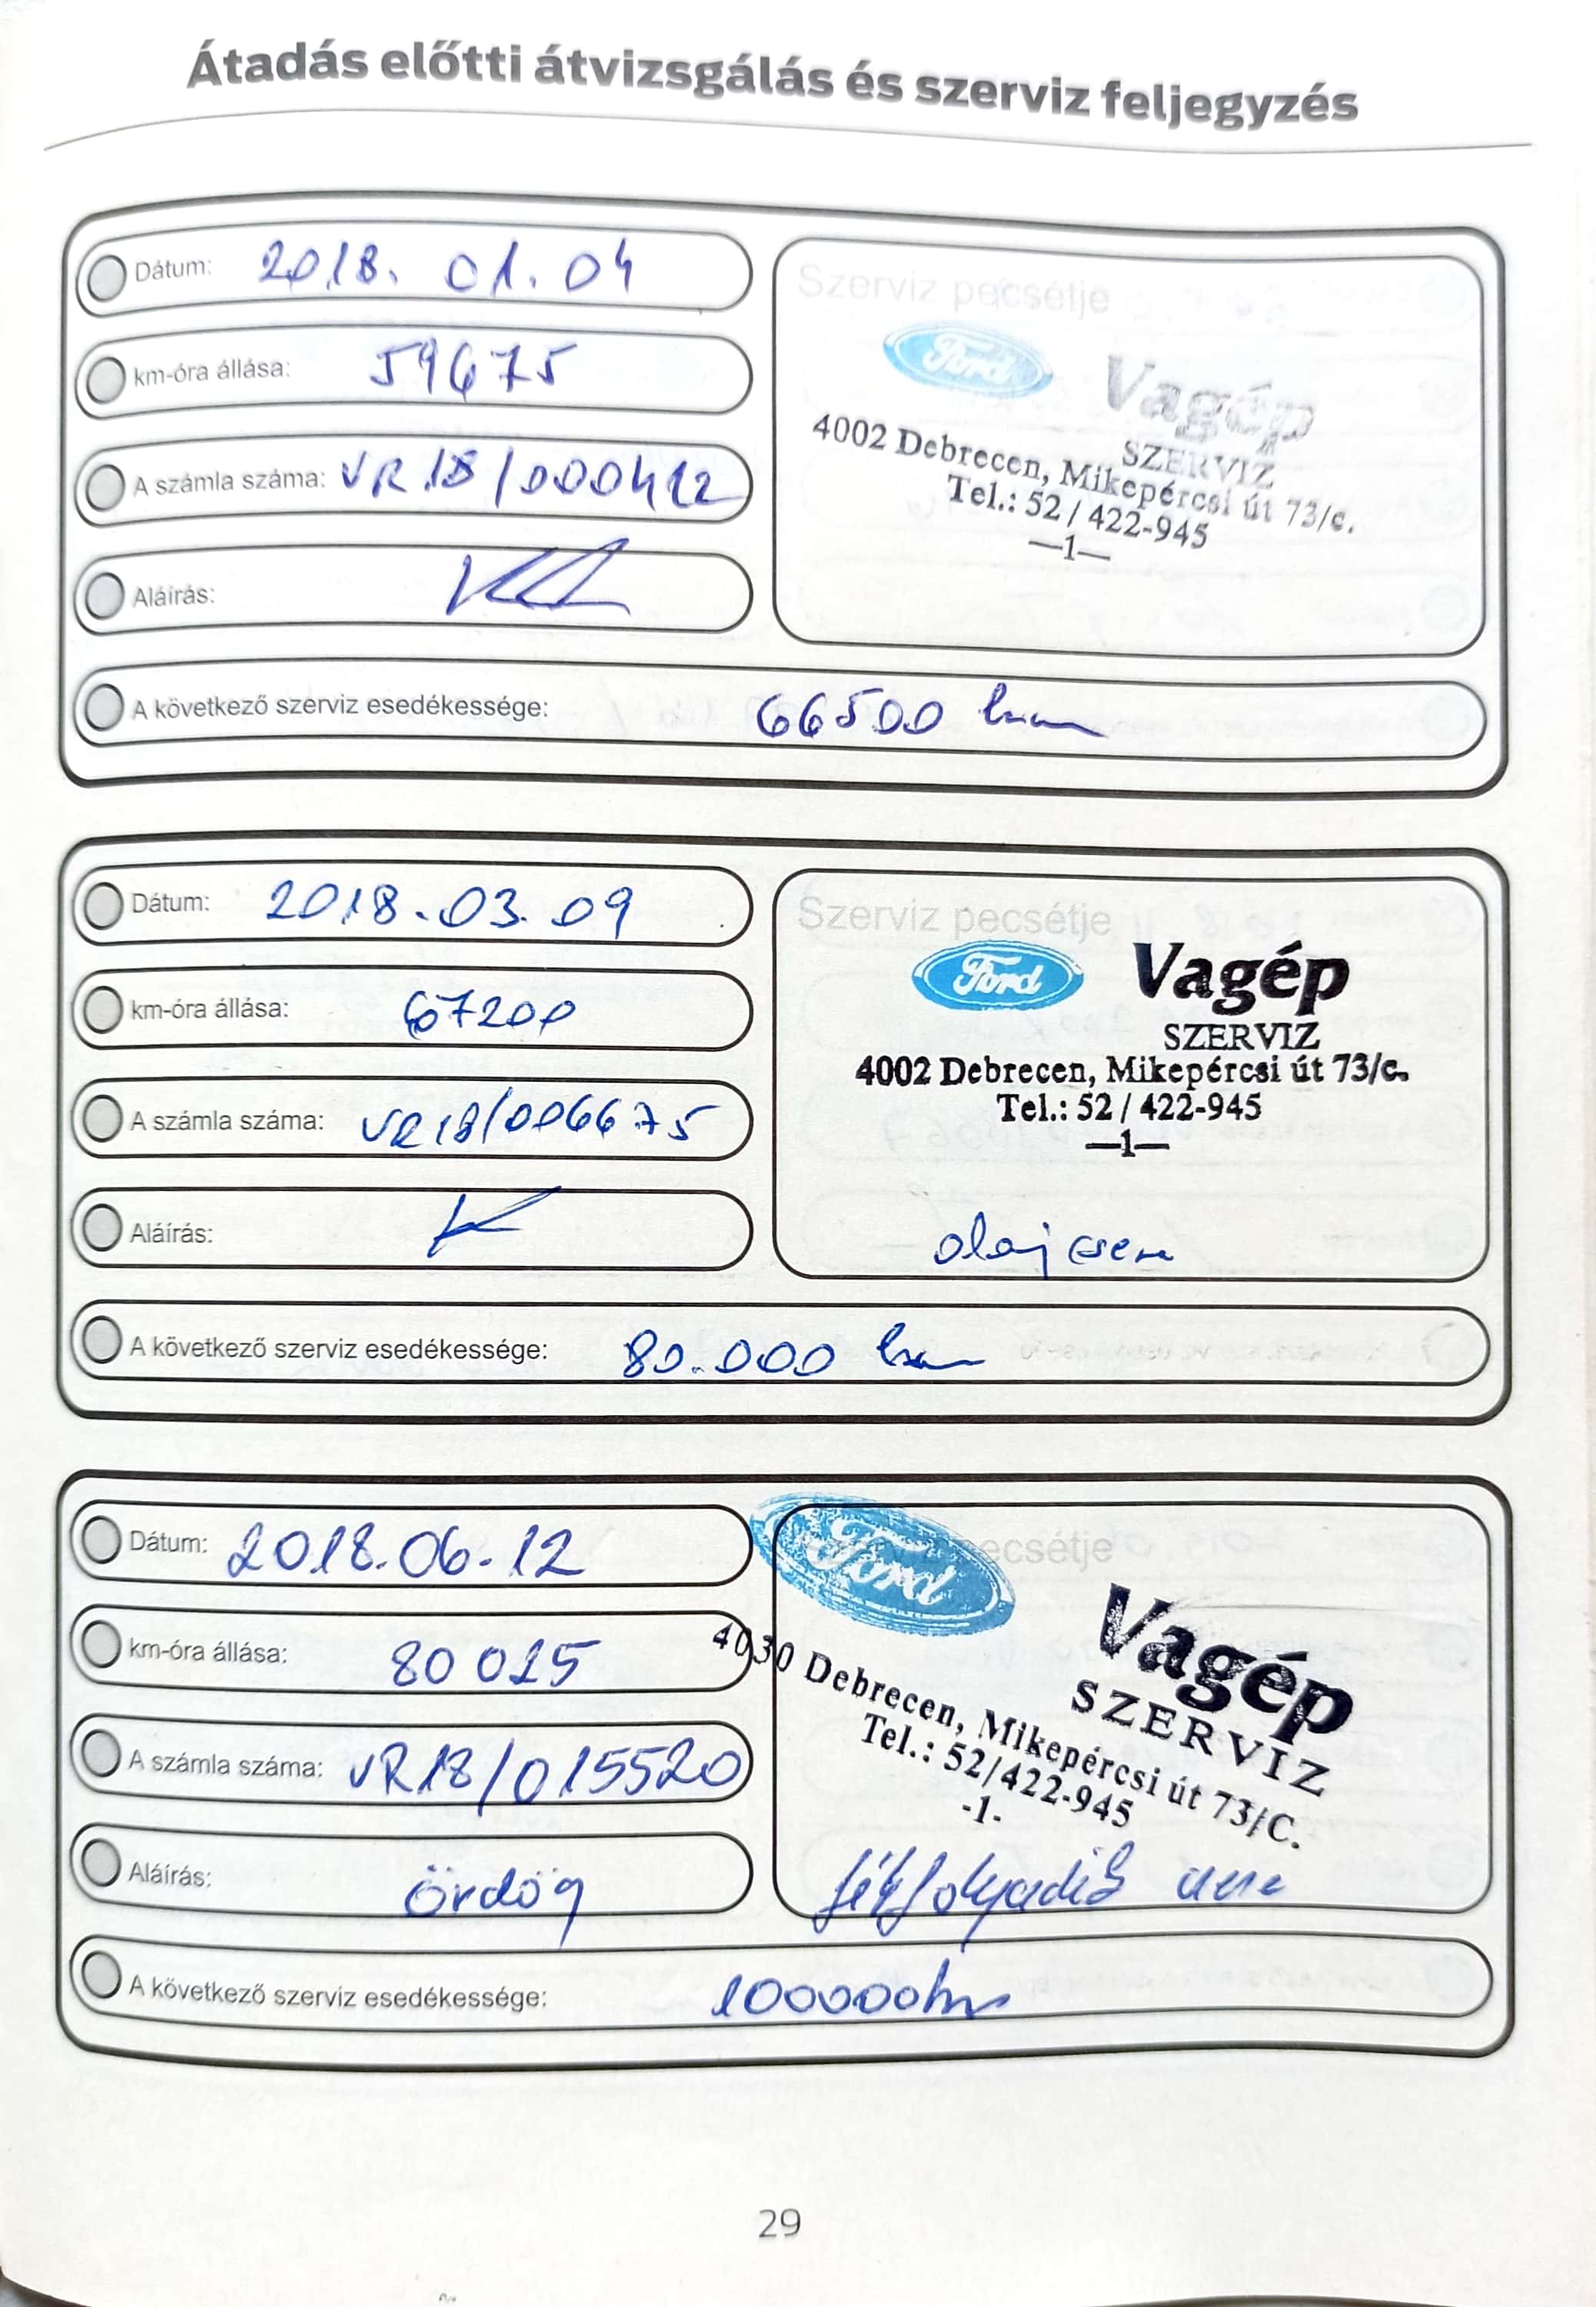 Átadás előtti átvizsgálás és szerviz feljegyzés
Dátum: 2018. 01. 04
km-óra állása: 59675
A számla száma: VR18/000412
Aláírás:
A következő szerviz esedékessége: 66500 km
Szerviz pecsétje
Ford Vagép
SZERVIZ
4002 Debrecen, Mikepércsi út 73/c.
Tel.: 52 / 422-945
—1—
Dátum: 2018.03.09
km-óra állása: 67200
A számla száma: VR18/006675
Aláírás:
A következő szerviz esedékessége: 80.000 km
Szerviz pecsétje
Ford Vagép
SZERVIZ
4002 Debrecen, Mikepércsi út 73/c.
Tel.: 52 / 422-945
—1—
olaj csere
Dátum: 2018.06.12
km-óra állása: 80 015
A számla száma: VR18/015520
Aláírás: Ördög
A következő szerviz esedékessége: 100000km
Szerviz pecsétje
Ford Vagép
SZERVIZ
4030 Debrecen, Mikepércsi út 73/C.
Tel.: 52/422-945
-1-
fékfolyadék csere
29